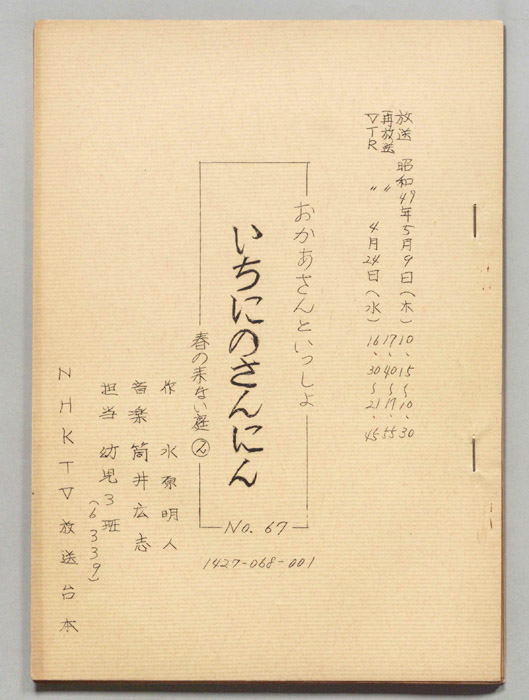 放送 昭和49年5月9日(木) 10、15〜10、30
再放送 〃 17、40〜17、55
VTR 〃 4月24日(水) 16、30〜21、45
おかあさんといっしょ
いちにのさんにん
春の来ない庭 ㋓
No. 67
1427-068-001
作 水原明人
音楽 筒井広志
担当 幼児3班
(6339)
NHKTV放送台本